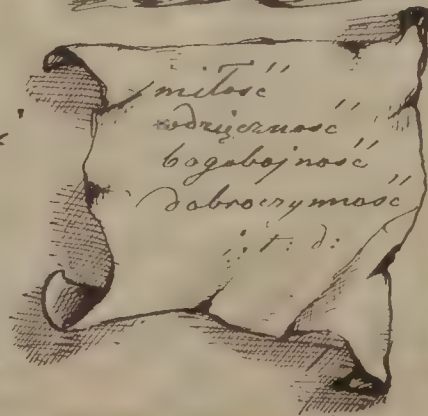 miłość
wdzięczność
bogobojność
dobroczynność
i: t: d: